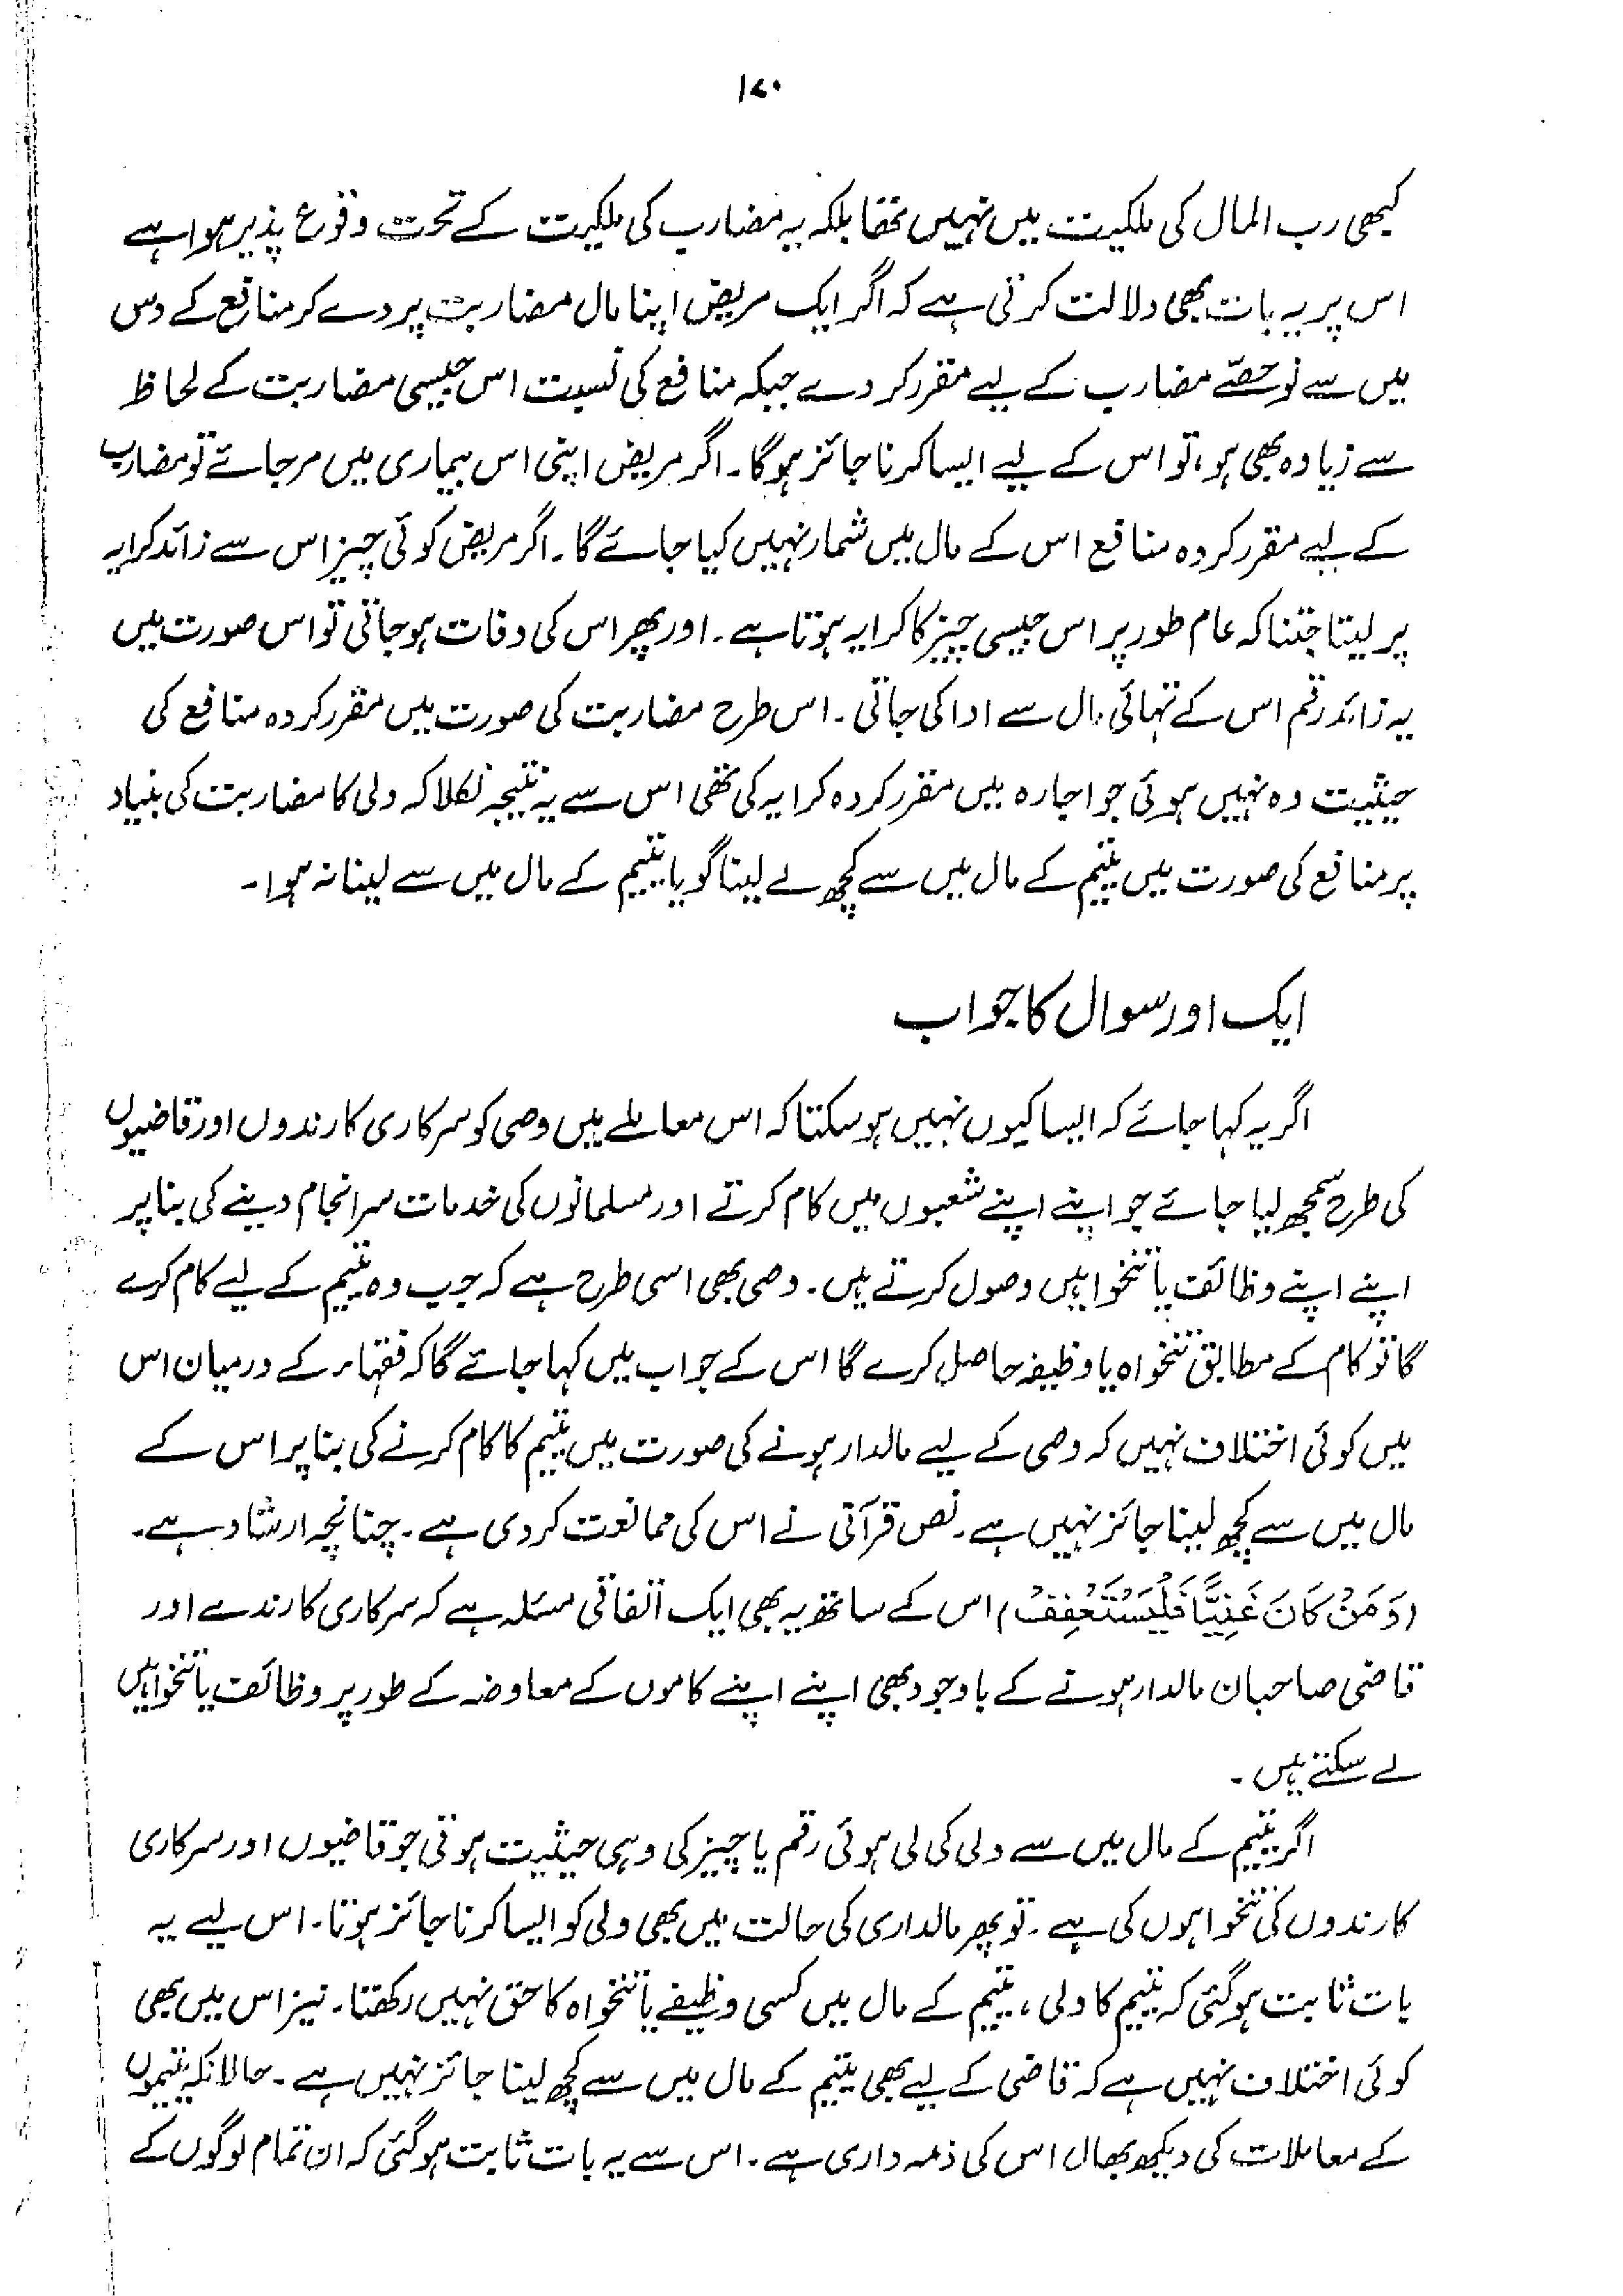 ۱۷۰
کبھی رب المال کی ملکیت میں نہیں تھا بلکہ یہ مضارب کی ملکیت کے تحت وقوع پذیر ہوا ہے
اس پر یہ بات بھی دلالت کرتی ہے کہ اگر ایک مریض اپنا مال مضاربت پر دے کر منافع کے دس
میں سے نو حصّے مضارب کے لیے مقرر کر دے جبکہ منافع کی نسبت اس جیسی مضاربت کے لحاظ
سے زیادہ بھی ہو، تو اس کے لیے ایسا کرنا جائز ہوگا۔ اگر مریض اپنی اس بیماری میں مرجائے تو مضارب
کے لیے مقرر کردہ منافع اس کے مال میں شمار نہیں کیا جائے گا۔ اگر مریض کوئی چیز اس سے زائد کرایہ
پر لیتا جتنا کہ عام طور پر اس جیسی چیز کا کرایہ ہوتا ہے۔ اور پھر اس کی وفات ہوجاتی تو اس صورت میں
یہ زائد رقم اس کے تہائی مال سے ادا کی جاتی۔ اس طرح مضاربت کی صورت میں مقرر کردہ منافع کی
حیثیت وہ نہیں ہوئی جو اجارہ میں مقرر کردہ کرایہ کی تھی اس سے یہ نتیجہ نکلا کہ ولی کا مضاربت کی بنیاد
پر منافع کی صورت میں یتیم کے مال میں سے کچھ لے لینا گویا یتیم کے مال میں سے لینا نہ ہوا۔
ایک اور سوال کا جواب
اگر یہ کہا جائے کہ ایسا کیوں نہیں ہوسکتا کہ اس معاملے میں وصی کو سرکاری کارندوں اور قاضیوں
کی طرح سمجھ لیا جائے جو اپنے اپنے شعبوں میں کام کرتے اور مسلمانوں کی خدمات سرانجام دینے کی بنا پر
اپنے اپنے وظائف یا تنخواہیں وصول کرتے ہیں۔ وصی بھی اسی طرح ہے کہ جب وہ یتیم کے لیے کام کرے
گا تو کام کے مطابق تنخواہ یا وظیفہ حاصل کرے گا اس کے جواب میں کہا جائے گا کہ فقہاء کے درمیان اس
میں کوئی اختلاف نہیں کہ وصی کے لیے مالدار ہونے کی صورت میں یتیم کا کام کرنے کی بنا پر اس کے
مال میں سے کچھ لینا جائز نہیں ہے۔ نص قرآنی نے اس کی ممانعت کردی ہے۔ چنانچہ ارشاد ہے۔
(وَمَنْ كَانَ غَنِيًّا فَلْيَسْتَعْفِفْ) اس کے ساتھ یہ بھی ایک اتفاقی مسئلہ ہے کہ سرکاری کارندے اور
قاضی صاحبان مالدار ہونے کے باوجود بھی اپنے اپنے کاموں کے معاوضہ کے طور پر وظائف یا تنخواہیں
لے سکتے ہیں۔
اگر یتیم کے مال میں سے ولی کی لی ہوئی رقم یا چیز کی وہی حیثیت ہوتی جو قاضیوں اور سرکاری
کارندوں کی تنخواہوں کی ہے۔ تو پھر مالداری کی حالت میں بھی ولی کو ایسا کرنا جائز ہوتا۔ اس لیے یہ
بات ثابت ہوگئی کہ یتیم کا ولی، یتیم کے مال میں کسی وظیفے یا تنخواہ کا حق نہیں رکھتا۔ نیز اس میں بھی
کوئی اختلاف نہیں ہے کہ قاضی کے لیے بھی یتیم کے مال میں سے کچھ لینا جائز نہیں ہے۔ حالانکہ یتیموں
کے معاملات کی دیکھ بھال اس کی ذمہ داری ہے۔ اس سے یہ بات ثابت ہوگئی کہ ان تمام لوگوں کے